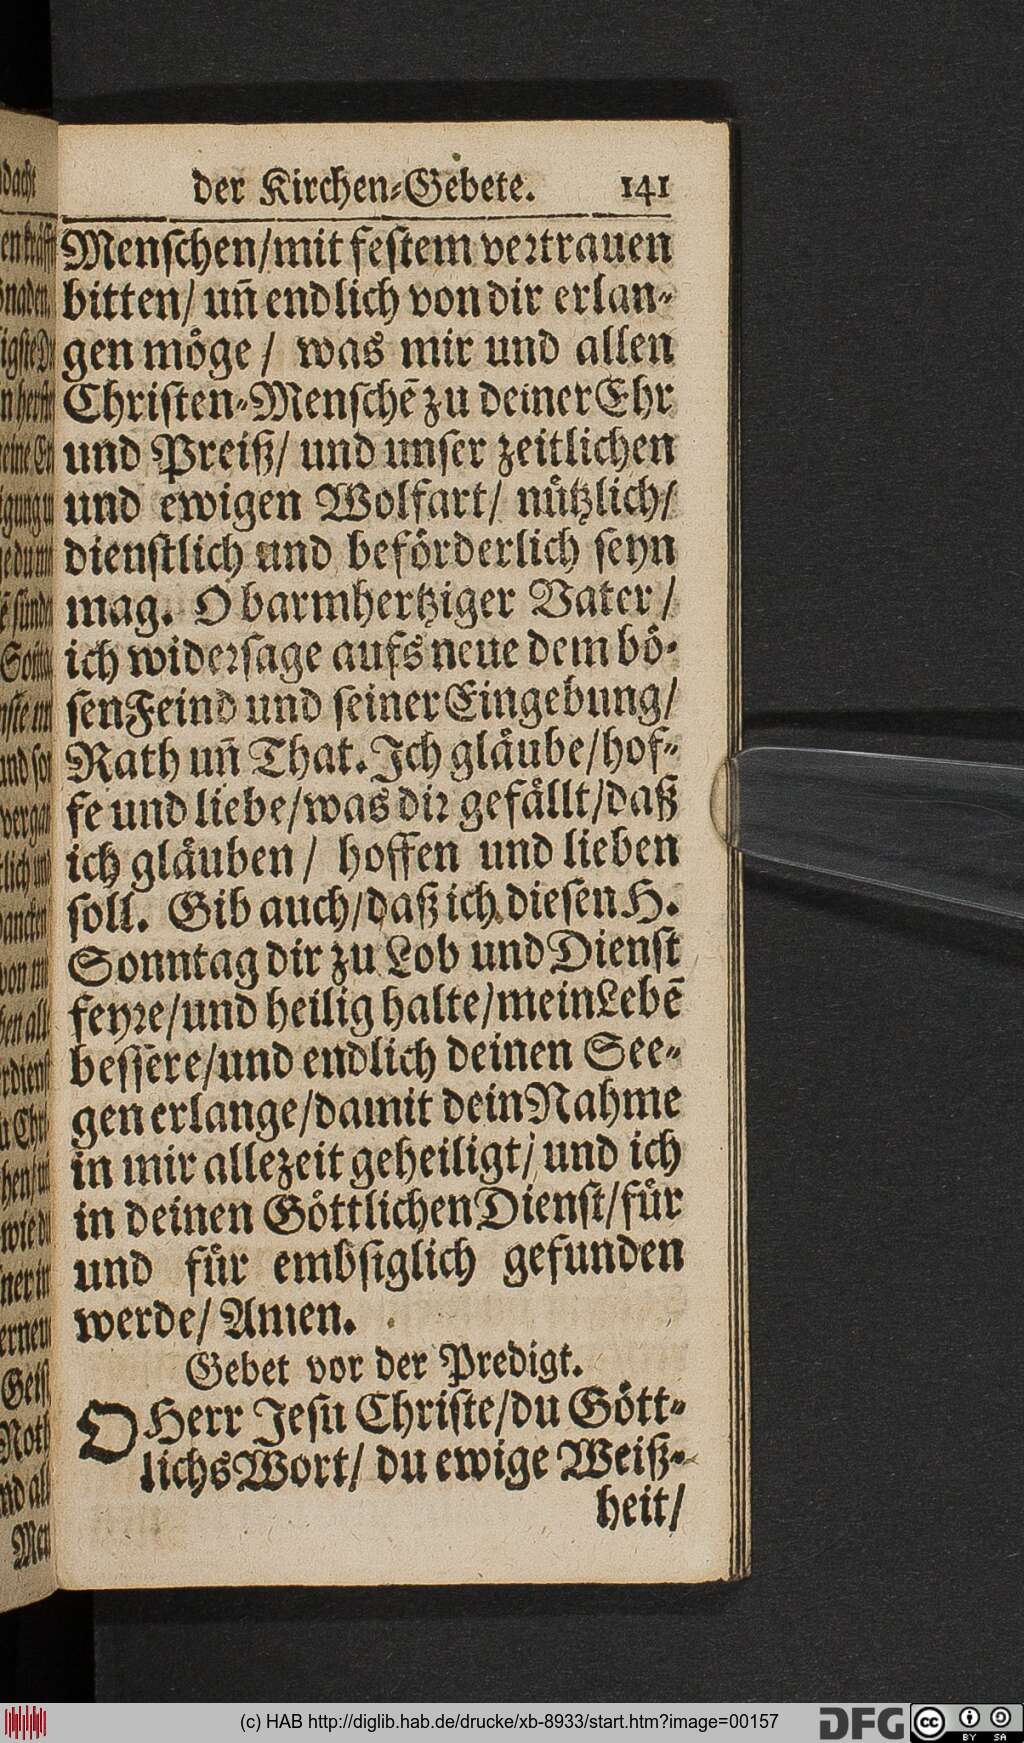 der Kirchen-Gebete. 141
Menschen/mit festem vertrauen
bitten/ uñ endlich von dir erlan-
gen möge/ was mir und allen
Christen-Menschẽ zu deiner Ehr
und Preiß/ und unser zeitlichen
und ewigen Wolfart/ nützlich/
dienstlich und beförderlich seyn
mag. O barmhertziger Vater/
ich widersage aufs neue dem bö-
sen Feind und seiner Eingebung/
Rath uñ That. Ich gläube/hof-
fe und liebe/was dir gefällt/daß
ich gläuben/ hoffen und lieben
soll. Gib auch/daß ich diesen H.
Sonntag dir zu Lob und Dienst
feyre/und heilig halte/mein Lebẽ
bessere/und endlich deinen See-
gen erlange/damit dein Nahme
in mir allezeit geheiligt/ und ich
in deinen Göttlichen Dienst/für
und für embsiglich gefunden
werde/ Amen.
Gebet vor der Predigt.
O Herr Jesu Christe/du Gött-
lichs Wort/ du ewige Weiß-
heit/
(c) HAB http://diglib.hab.de/drucke/xb-8933/start.htm?image=00157
DFG cc BY SA